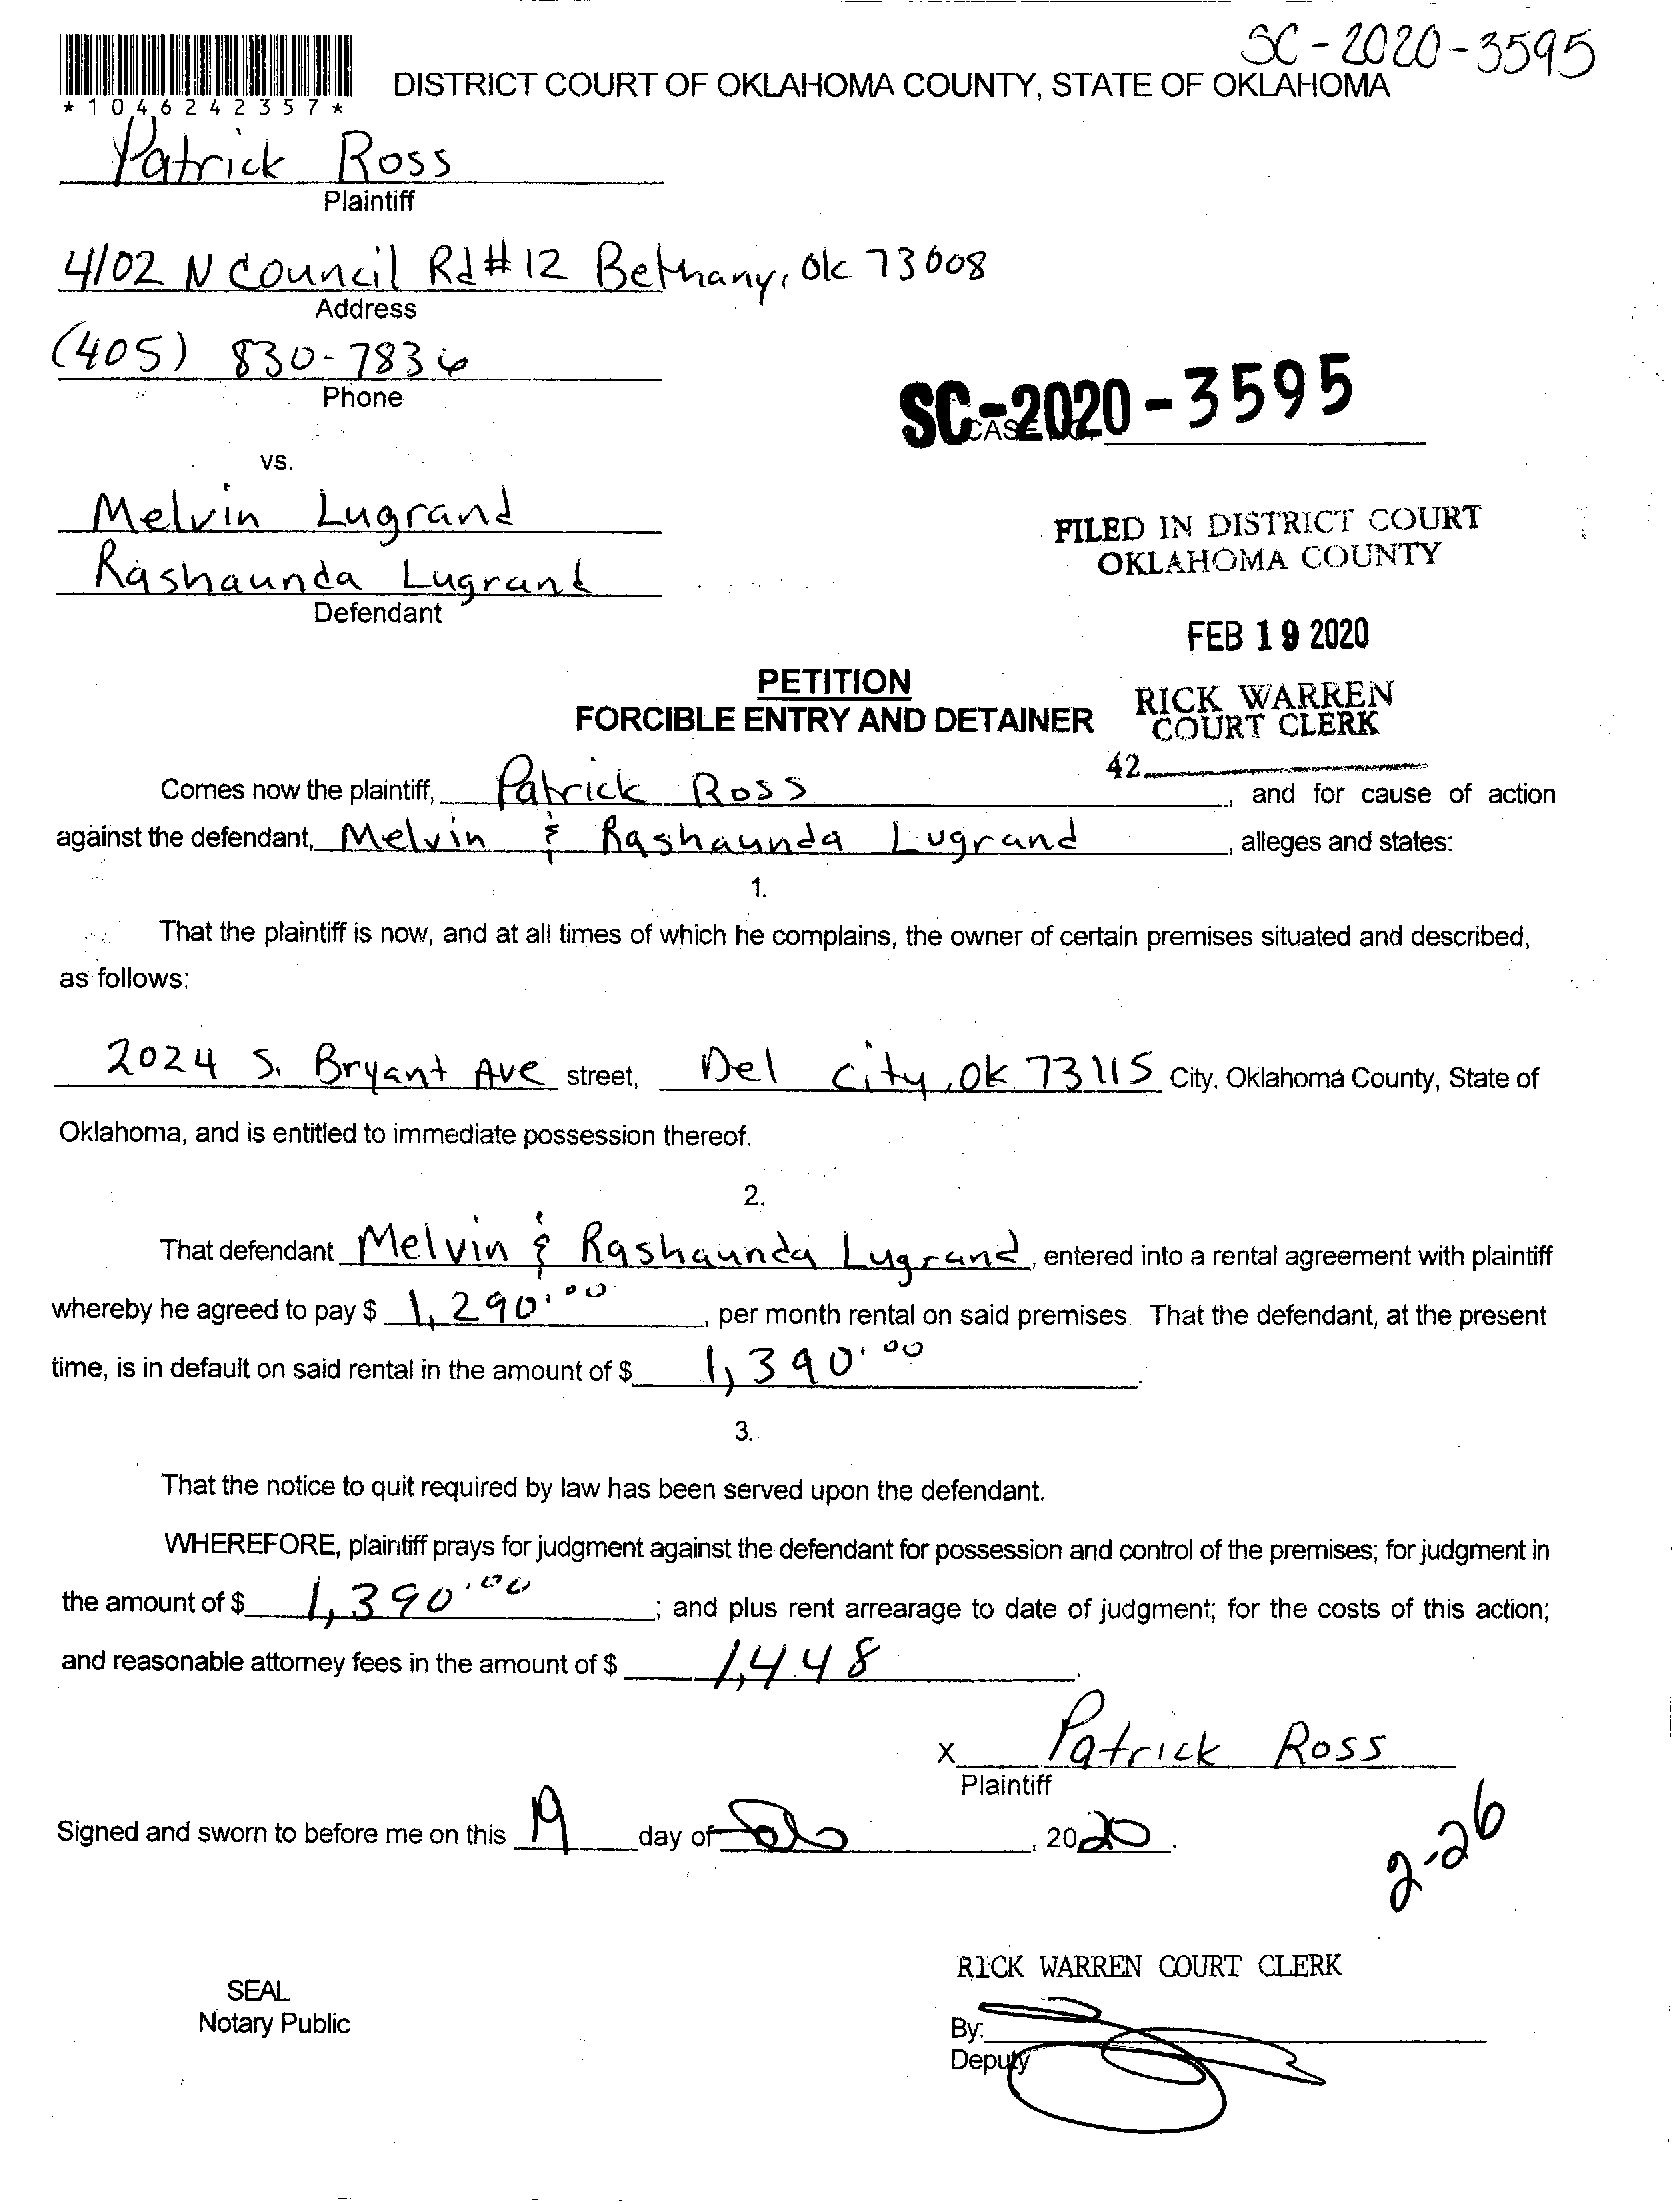 SC-2020-3595
DISTRICT COURT OF OKLAHOMA COUNTY, STATE OF OKLAHOMA
*1046242357*
Patrick Ross
Plaintiff
4102 N Council Rd #12 Bethany, Ok 73008
Address
(405) 830-7836
Phone
SC-2020-3595
CASE
vs.
Melvin Lugrand
Rashaunda Lugrand
Defendant
FILED IN DISTRICT COURT
OKLAHOMA COUNTY
FEB 19 2020
RICK WARREN
COURT CLERK
42
PETITION
FORCIBLE ENTRY AND DETAINER
Comes now the plaintiff, Patrick Ross, and for cause of action
against the defendant, Melvin & Rashaunda Lugrand, alleges and states:
1.
That the plaintiff is now, and at all times of which he complains, the owner of certain premises situated and described,
as follows:
2024 S. Bryant Ave street, Del City, Ok 73115 City, Oklahoma County, State of
Oklahoma, and is entitled to immediate possession thereof.
2.
That defendant Melvin & Rashaunda Lugrand, entered into a rental agreement with plaintiff
whereby he agreed to pay $ 1,290.00, per month rental on said premises. That the defendant, at the present
time, is in default on said rental in the amount of $ 1,390.00.
3.
That the notice to quit required by law has been served upon the defendant.
WHEREFORE, plaintiff prays for judgment against the defendant for possession and control of the premises; for judgment in
the amount of $ 1,390.00; and plus rent arrearage to date of judgment; for the costs of this action;
and reasonable attorney fees in the amount of $ 1,448.
x Patrick Ross
Plaintiff
Signed and sworn to before me on this 19 day of Feb, 2020.
2-26
RICK WARREN COURT CLERK
SEAL
Notary Public
By:
Deputy